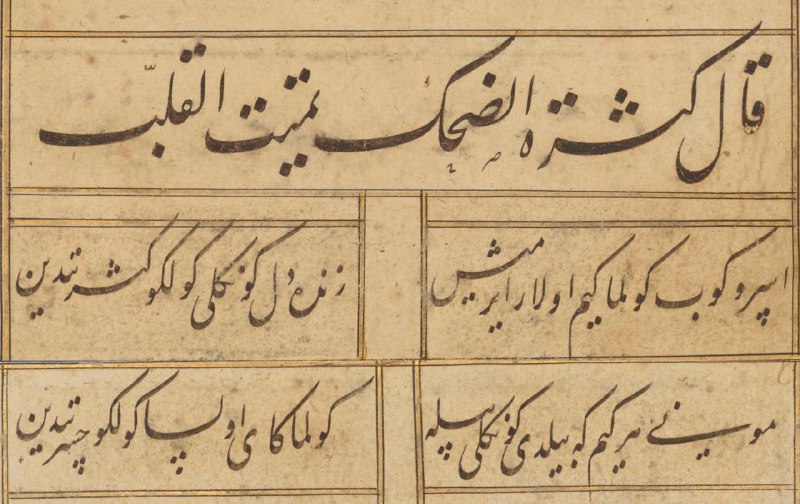 قال کثرة الضحک تمیت القلب
اسرو کوب کولما کیم اولار ایرمیش
زنده دل کونکلی کولکو کثرتیدین
مونی هر کیم که بیلدی کونکلی بیله
کولماکای اولسا کولکو حسرتیدین